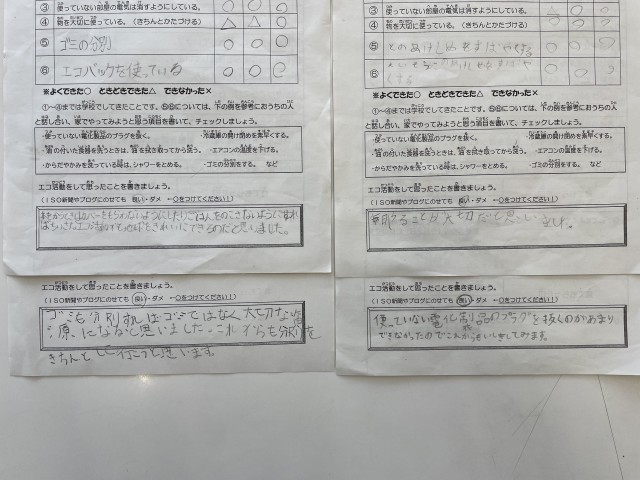 ③ 使っていない部屋の電気は消すようにしている。
④ 物を大切に使っている。(きちんとかたづける)
⑤ ゴミの分別
⑥ エコバックを使っている
※よくできた○ ときどきできた△ できなかった×
①~④までは学校でしてきたことです。⑤⑥については、下の例を参考におうちの人
と話し合い、家でやってみようと思う項目を書いて、チェックしましょう。
・使っていない電化製品のプラグを抜く。 ・冷蔵庫の開け閉めを素早くする。
・油の付いた食器を洗うときは、油を拭き取ってから洗う。 ・エアコンの温度を下げる。
・からだやかみを洗っている時は、シャワーをとめる。 ・ゴミの分別をする。 など
エコ活動をして思ったことを書きましょう。
(ISO新聞やブログにのせても 良い・ダメ ←○をつけてください!)
エコ活動をして思ったことを書きましょう。
(ISO新聞やブログにのせても 良い・ダメ ←○をつけてください!)
ゴミも分別すればゴミではなく大切な資
源になると思いました。これからも分別を
きちんと
③ 使っていない部屋の電気は消すようにしている。
④ 物を大切に使っている。(きちんとかたづける)
⑤
⑥
※よくできた○ ときどきできた△ できなかった×
①~④までは学校でしてきたことです。⑤⑥については、下の例を参考におうちの人
と話し合い、家でやってみようと思う項目を書いて、チェックしましょう。
・使っていない電化製品のプラグを抜く。 ・冷蔵庫の開け閉めを素早くする。
・油の付いた食器を洗うときは、油を拭き取ってから洗う。 ・エアコンの温度を下げる。
・からだやかみを洗っている時は、シャワーをとめる。 ・ゴミの分別をする。 など
エコ活動をして思ったことを書きましょう。
(ISO新聞やブログにのせても 良い・ダメ ←○をつけてください!)
ることが大切だと思いました。
エコ活動をして思ったことを書きましょう。
(ISO新聞やブログにのせても 良い・ダメ ←○をつけてください!)
使っていない電化製品のプラグを抜くのがあまり
できなかったのでこれから